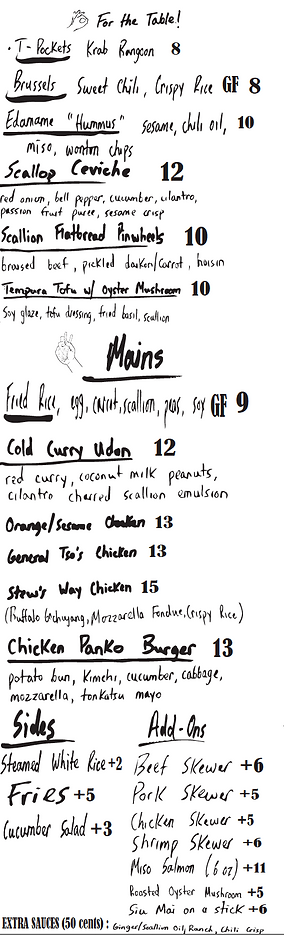 For the Table!
· T-Pockets Krab Rangoon 8
Brussels Sweet Chili, Crispy Rice GF 8
Edamame "Hummus" sesame, chili oil, 10
miso, wonton chips
Scallop Ceviche 12
red onion, bell pepper, cucumber, cilantro,
passion fruit puree, sesame crisp
Scallion Flatbread Pinwheels 10
braised beef, pickled daikon/carrot, hoisin
Tempura Tofu w/ Oyster Mushroom 10
Soy glaze, tofu dressing, fried basil, scallion
Mains
Fried Rice, egg, carrot, scallion, peas, soy GF 9
Cold Curry Udon 12
red curry, coconut milk peanuts,
cilantro charred scallion emulsion
Orange/Sesame Chicken 13
General Tso's Chicken 13
Stew's Way Chicken 15
(Buffalo Gochujang, Mozzarella Fondue, Crispy Rice)
Chicken Panko Burger 13
potato bun, Kimchi, cucumber, cabbage,
mozzarella, tonkatsu mayo
Sides
Steamed White Rice +2
Fries +5
Cucumber Salad +3
Add-Ons
Beef Skewer +6
Pork Skewer +5
Chicken Skewer +5
Shrimp Skewer +6
Miso Salmon (6 oz) +11
Roasted Oyster Mushroom +5
Siu Mai on a stick +6
EXTRA SAUCES (50 cents) : Ginger/Scallion Oil, Ranch, Chili Crisp